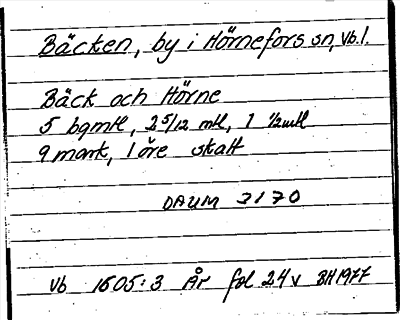 Bäcken, by i Hörnefors sn, Vb.l.
Bäck och Hörne
5 bgmtl, 2 5/12 mtl, 1 1/2 mtl
9 mark, 1 öre skatt
DAUM 3170
Vb 1605:3 År fol 24v BH 1977